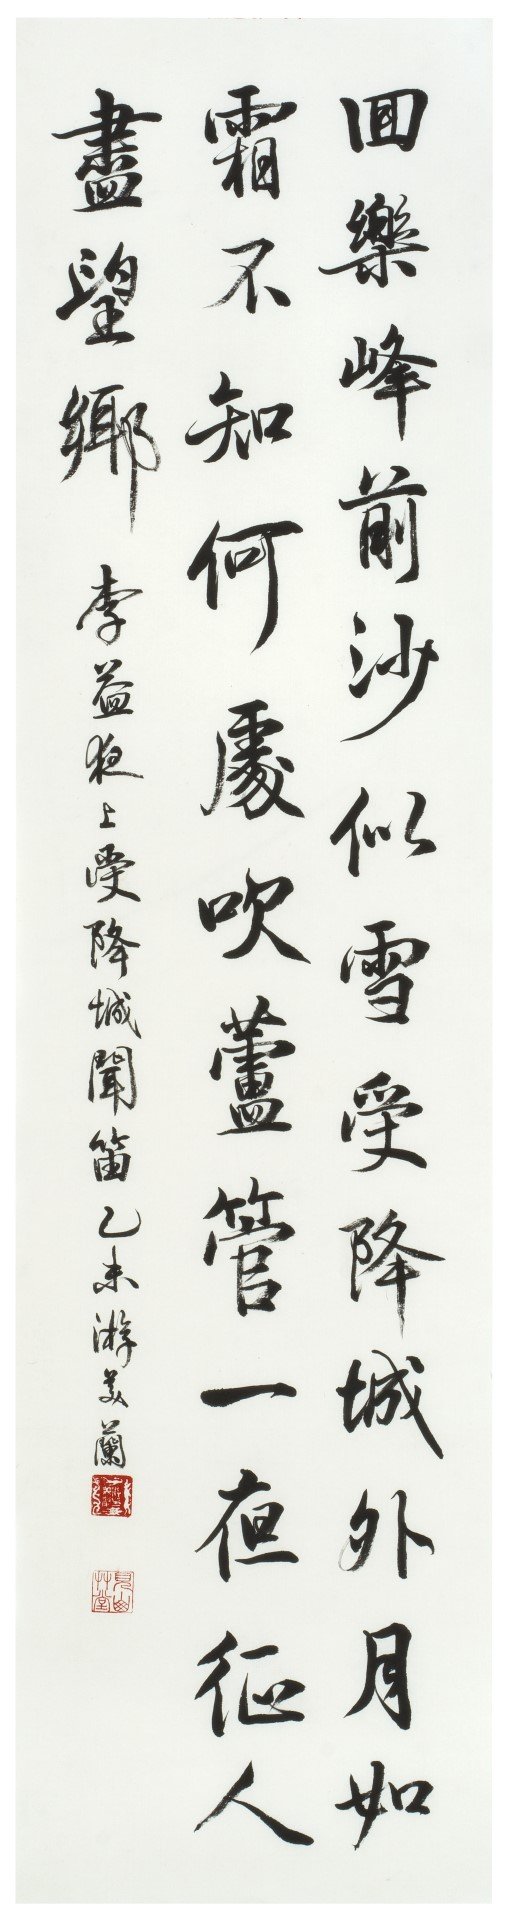 回樂峰前沙似雪受降城外月如
霜不知何處吹蘆管一夜征人
盡望鄉
李益夜上受降城聞笛乙未游美蘭